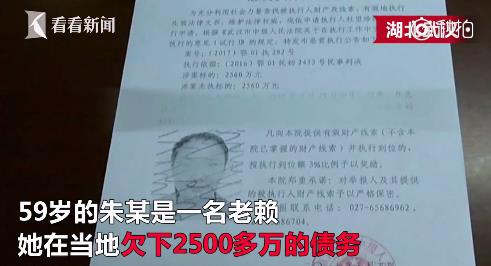 看看新闻
湖北武汉
为充分利用社会力量查找被执行人财产及线索，有效地执行
生效法律文书，维护法律权威，现依申请执行人杜里涉
案号：（2017）鄂 01 执 282 号
执行依据：（2016）鄂 01 民初 2433 号民事判决
涉案标的：2560 万元
涉案未执标的：2560 万元
凡向本院提供有效财产线索（不含本
院已掌握的财产线索）并执行到位的，
按执行到位额 3%比例予以奖励。
本院郑重承诺：对举报人及其提供
的被执行人财产线索予以严格保密。
联系电话：027-65686962、
59岁的朱某是一名老赖
她在当地欠下2500多万的债务